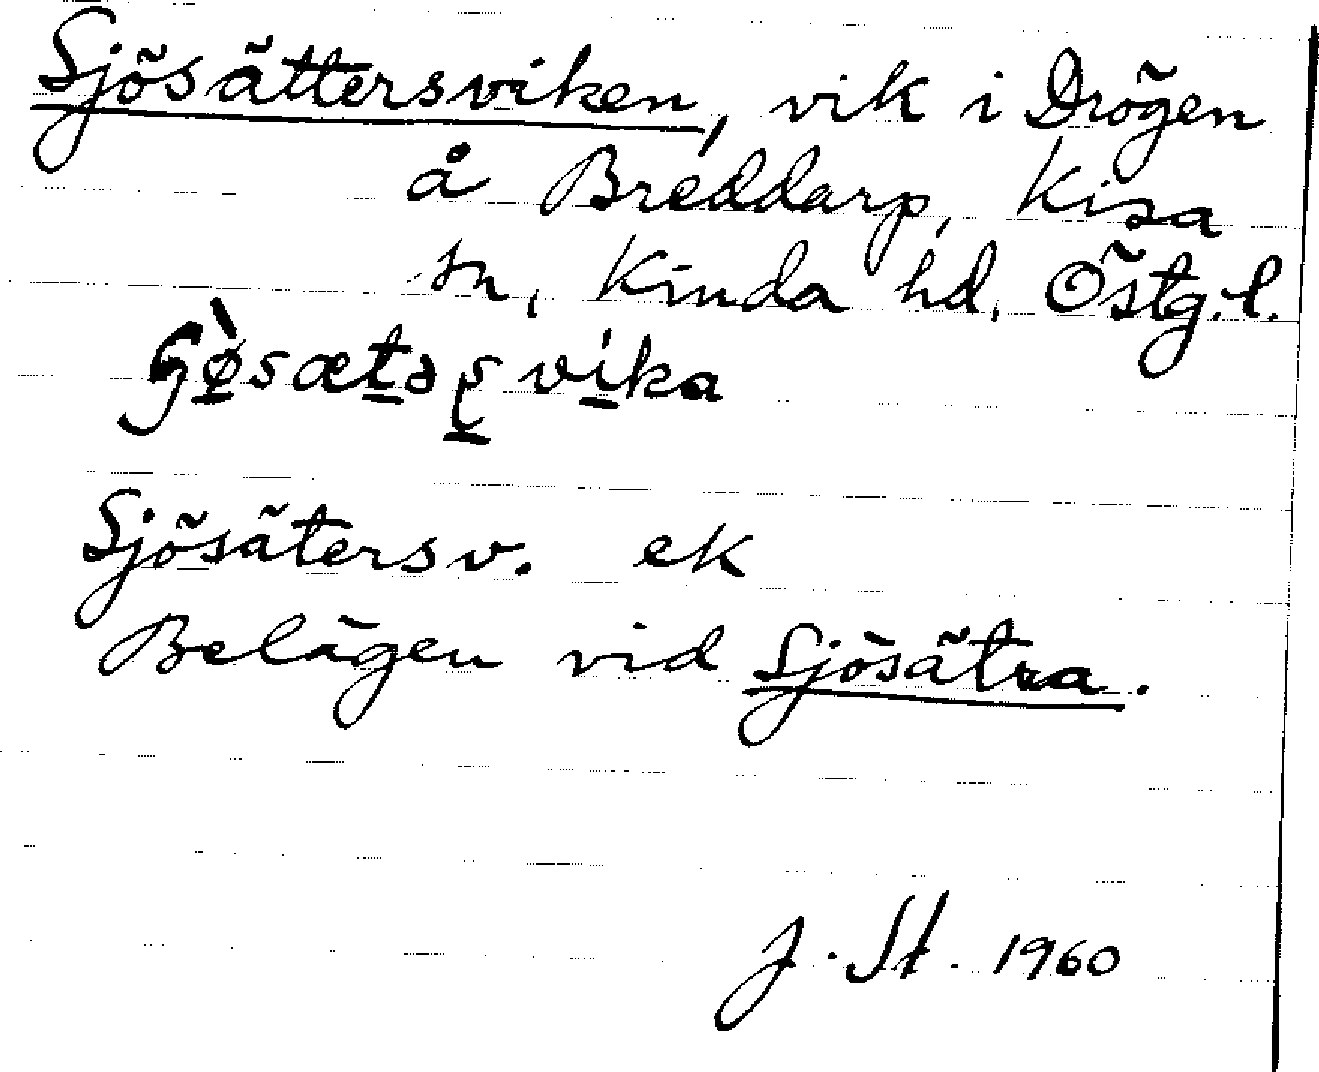 Sjösättersviken, vik i Drögen
å Breddarp, Kisa
sn, Kinda hd, Östg.l.
Sjösätersv. ek
Belägen vid Sjösätra.
J. St. 1960